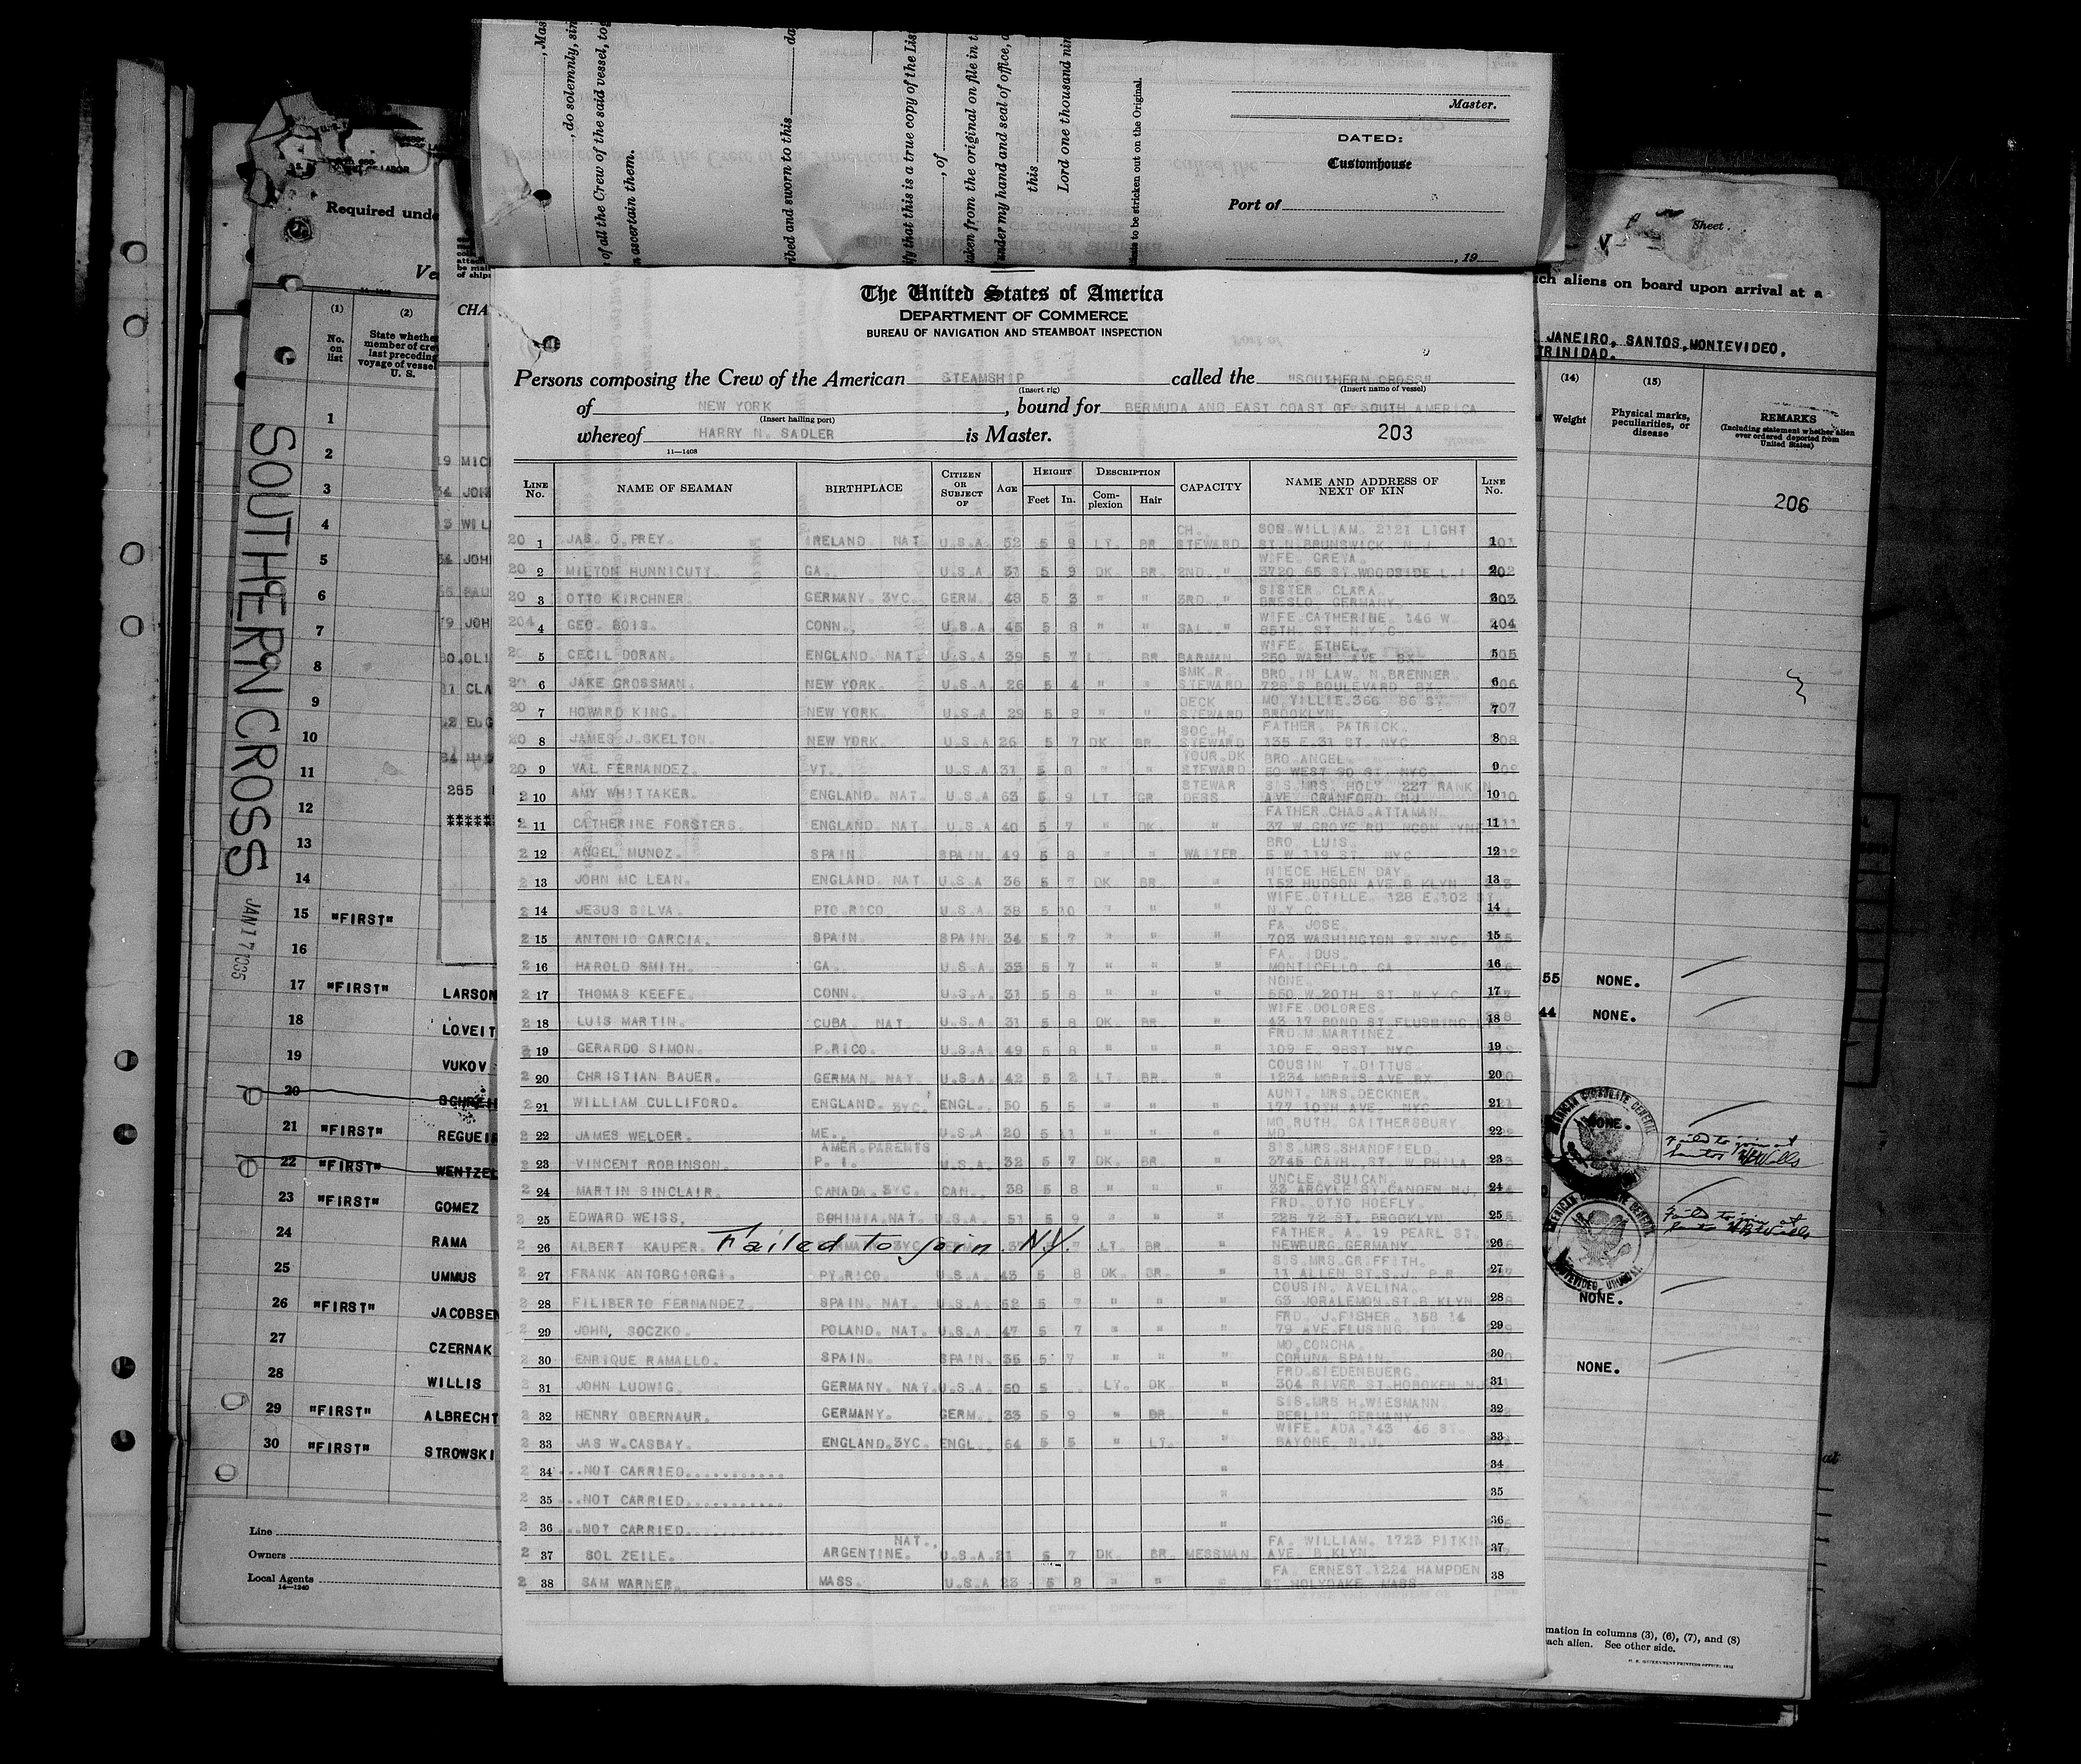 , Mas
, do solemnly, sin
of all the Crew of the said vessel, tog
ascertain them.
ribed and sworn to this
da
fy that this is a true copy of the Lis
, of
taken from the original on file in t
under my hand and seal of office, a
this
Lord one thousand nin
to be stricken out on the Original.
Master.
DATED:
Customhouse
Port of
, 19
Required unde
Ve
(1) (2)
No. on list
State whethe
member of cre
last preceding
voyage of vessel
U. S.
CHA
SOUTHERN CROSS
JAN 17 1935
1
2
3
4
5
6
7
8
9
10
11
12
13
14
15 "FIRST"
16
17 "FIRST" LARSON
18 LOVEIT
19 VUKOV
20
21 "FIRST" REGUEI
22 "FIRST" WENTZEL
23 "FIRST" GOMEZ
24 RAMA
25 UMMUS
26 "FIRST" JACOBSEN
27 CZERNAK
28 WILLIS
29 "FIRST" ALBRECHT
30 "FIRST" STROWSKI
Line
Owners
Local Agents
14—1240
The United States of America
DEPARTMENT OF COMMERCE
BUREAU OF NAVIGATION AND STEAMBOAT INSPECTION
Persons composing the Crew of the American STEAMSHIP called the "SOUTHERN CROSS"
(Insert rig) (Insert name of vessel)
of NEW YORK, bound for BERMUDA AND EAST COAST OF SOUTH AMERICA
(Insert hailing port)
whereof HARRY N. SADLER is Master. 203
11—1408
LINE No. NAME OF SEAMAN BIRTHPLACE CITIZEN OR SUBJECT OF AGE HEIGHT Feet In. DESCRIPTION Complexion Hair CAPACITY NAME AND ADDRESS OF NEXT OF KIN LINE No.
1 JAS. O. PREY. IRELAND NAT U.S.A. 52 5 9 LT. BR CH. STEWARD SON WILLIAM. 2121 LIGHT ST N.BRUNSWICK. N.J. 1
2 MILTON HUNNICUTT GA. U.S.A 31 5 9 DK. BR. 2ND. " WIFE. GRETA. 3720 65 ST WOODSIDE L.I 2
3 OTTO KIRCHNER. GERMANY. 3YC. GERM. 48 5 3 " " 3RD. " SISTER. CLARA. BRESLO. GERMANY. 3
4 GEO. BOIS. CONN., U.S.A. 45 5 8 " " SAL. " WIFE CATHERINE. 146 W. 85TH. ST. N.Y.C. 4
5 CECIL DORAN. ENGLAND. NAT. U.S.A 39 5 7 L BR. BARMAN. WIFE. ETHEL. 250 WASH. AVE BX. 5
6 JAKE GROSSMAN. NEW YORK. U.S.A. 26 5 4 " " SMK.R. STEWARD BRO.IN LAW. N.BRENNER. 728 S BOULEVARD. BX. 6
7 HOWARD KING. NEW YORK. U.S.A 29 5 8 " " DECK STEWARD MO.TILLIE.366 86 ST. BROOKLYN. 7
8 JAMES J.SKELTON. NEW YORK. U.S.A 26 5 7 DK BR. SOC.H. STEWARD FATHER. PATRICK. 135 E.31 ST. NYC 8
9 VAL FERNANDEZ. VT. U.S.A. 31 5 8 " " TOUR.DK STEWARD BRO ANGEL. 50 WEST 90 ST. NYC 9
10 AMY WHITTAKER. ENGLAND. NAT. U.S.A 63 5 9 LT GR STEWARDESS SIS.MRS. HOLY 227 RANKN AVE CRANFORD NJ. 10
11 CATHERINE FORSTERS. ENGLAND. NAT. U.S.A 40 5 7 " DK. " FATHER CHAS.ATTAMAN. 37 W.GROVE RD. NCON TYNE 11
12 ANGEL MUNOZ. SPAIN SPAIN. 49 5 8 " " WAITER. BRO. LUIS. 5 W 119 ST. NYC 12
13 JOHN MC LEAN. ENGLAND. NAT U.S.A 36 5 7 DK. BR. " NIECE HELEN DAY. 152 HUDSON AVE B KLYN 13
14 JESUS SILVA. PTO.RICO. U.S.A. 38 5 10 " " " WIFE OTILLE. 128 E.102 ST N.Y.C. 14
15 ANTONIO GARCIA. SPAIN. SPAIN. 34 5 7 " " " FA JOSE. 703 WASHINGTON ST.NYC. 15
16 HAROLD SMITH. GA. U.S.A. 33 5 7 " " " FA. IDUS. MONTICELLO. GA 16
17 THOMAS KEEFE. CONN. U.S.A. 31 5 8 " " " NONE. 550 W.20TH. ST. N.Y.C. 17
18 LUIS MARTIN. CUBA. NAT. U.S.A. 31 5 8 DK. BR. " WIFE DOLORES. 43 17 BOND ST FLUSHING. 18
19 GERARDO SIMON. P.RICO. U.S.A. 49 5 8 " " " FRD M.MARTINEZ. 109 E. 98ST. NYC. 19
20 CHRISTIAN BAUER. GERMAN. NAT. U.S.A. 42 5 2 LT. BR. " COUSIN T.DITTUS. 1234 MORRIS AVE BX. 20
21 WILLIAM CULLIFORD. ENGLAND. 3YC. ENGL. 50 5 5 " " " AUNT. MRS.DECKNER. 177 10TH AVE. NYC. 21
22 JAMES WELDER. ME. U.S.A 20 5 11 " " " MO RUTH. GAITHERSBURY. MD. 22
23 VINCENT ROBINSON. AMER.PARENTS P. I. U.S.A. 32 5 7 DK. BR. " SIS.MRS.SHANDFIELD. 3745 CATH. ST. W.PHILA. 23
24 MARTIN SINCLAIR. CANADA. 3YC. CAN. 38 5 8 " " " UNCLE. SUICAN. 33 ARGYLE ST.CAMDEN NJ. 24
25 EDWARD WEISS, BOHIMIA.NAT. U.S.A. 51 5 9 " " " FRD. OTTO HOEFLY. 226 72 ST. BROOKLYN 25
26 ALBERT KAUPER. Failed to join. N.Y. LT. BR. " FATHER. A. 19 PEARL ST. NEWBURG.GERMANY. 26
27 FRANK ANTORGIORGI. PT.RICO. U.S.A. 43 5 8 DK. BR. " SIS.MRS.GRIFFITH. 11 ALLEN ST.S.J. P.R 27
28 FILIBERTO FERNANDEZ. SPAIN. NAT U.S.A. 52 5 7 " " " COUSIN. AVELINA. 63 JORALEMON.ST.B KLYN. 28
29 JOHN, SOCZKO. POLAND. NAT. U.S.A. 47 5 7 " " " FRD. J.FISHER. 158 14 79 AVE.FLUSING. 29
30 ENRIQUE RAMALLO. SPAIN. SPAIN. 35 5 7 " " " MO.CONCHA. CORUNA SPAIN. 30
31 JOHN LUDWIG. GERMANY. NAT. U.S.A. 50 5 LT. DK. " FRD.SIEDENBUERG. 304 RIVER ST.HOBOKEN NJ 31
32 HENRY OBERNAUR. GERMANY. GERM. 33 5 9 " BR. " SIS.MRS H.WIESMANN. BERLIN. GERMANY. 32
33 JAS W.CASBAY. ENGLAND.3YC. ENGL. 64 5 5 " LT. " WIFE. ADA. 143 46 ST. BAYONE. N.J. 33
34 ...NOT CARRIED........... " 34
35 ...NOT CARRIED........... " 35
36 ...NOT CARRIED........... " 36
37 SOL ZEILE. NAT., ARGENTINE. U.S.A 21 5 7 DK. BR. MESSMAN. FA. WILLIAM. 1723 PITKIN AVE B.KLYN. 37
38 SAM WARNER. MASS. U.S.A 23 5 8 " " " FA. ERNEST.1224 HAMPDEN ST HOLYOAKE MASS 38
Sheet
ch aliens on board upon arrival at a
JANEIRO, SANTOS, MONTEVIDEO,
TRINIDAD.
(14) (15)
Weight
Physical marks, peculiarities, or disease
REMARKS
(Including statement whether alien ever ordered deported from United States)
206
55 NONE.
44 NONE.
NONE.
Failed to join at
Santos
AMERICAN CONSULATE GENERAL
MONTEVIDEO, URUGUAY.
NONE.
NONE.
mation in columns (3), (6), (7), and (8)
ach alien. See other side.